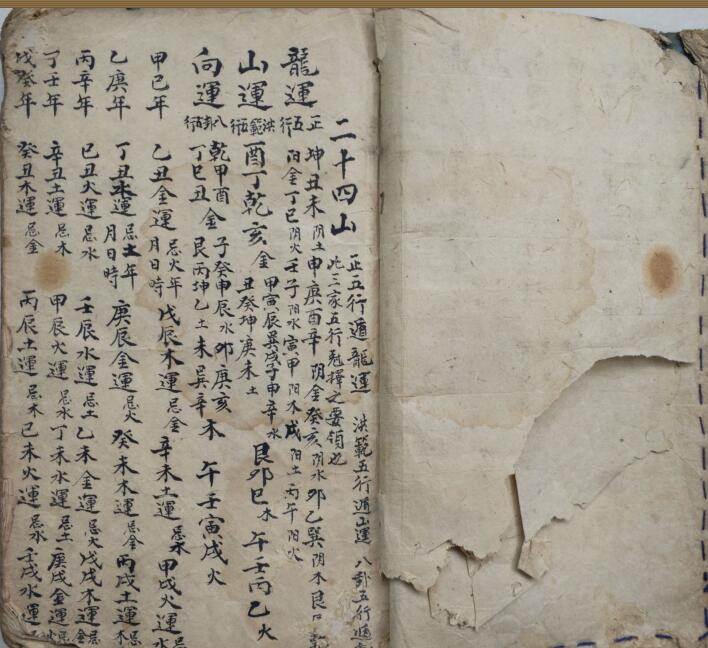 二十四山
正五行遁龍運 洪範五行遁山運 八卦五行遁
此三家五行剋擇之要領也
龍運 正五行 坤丑未陰土申庚酉辛陰金癸亥陰水卯乙巽陰木艮
陽金丁巳陰火壬子陽水寅甲陽木戌陽土丙午陽火
山運 洪範五行 酉丁乾亥金 甲寅辰巽戌子申辛水 丑癸坤庚未土 艮卯巳木 午壬丙乙火
向運 八卦五行 乾甲酉丁巳丑金 子癸申辰水 艮丙坤乙土 卯庚亥未巽辛木 午壬寅戌火
甲己年 乙丑金運忌火年月日時 戊辰木運忌金 辛未土運忌木 甲戌火運忌水
乙庚年 丁丑水運忌土年月日時 庚辰金運忌火 癸未木運忌金 丙戌土運忌木
丙辛年 己丑火運忌水 壬辰水運忌土 乙未金運忌火 戊戌木運忌金
丁壬年 辛丑土運忌木 甲辰火運忌水 丁未水運忌土 庚戌金運忌
戊癸年 癸丑木運忌金 丙辰土運忌木 己未火運忌水 壬戌水運忌